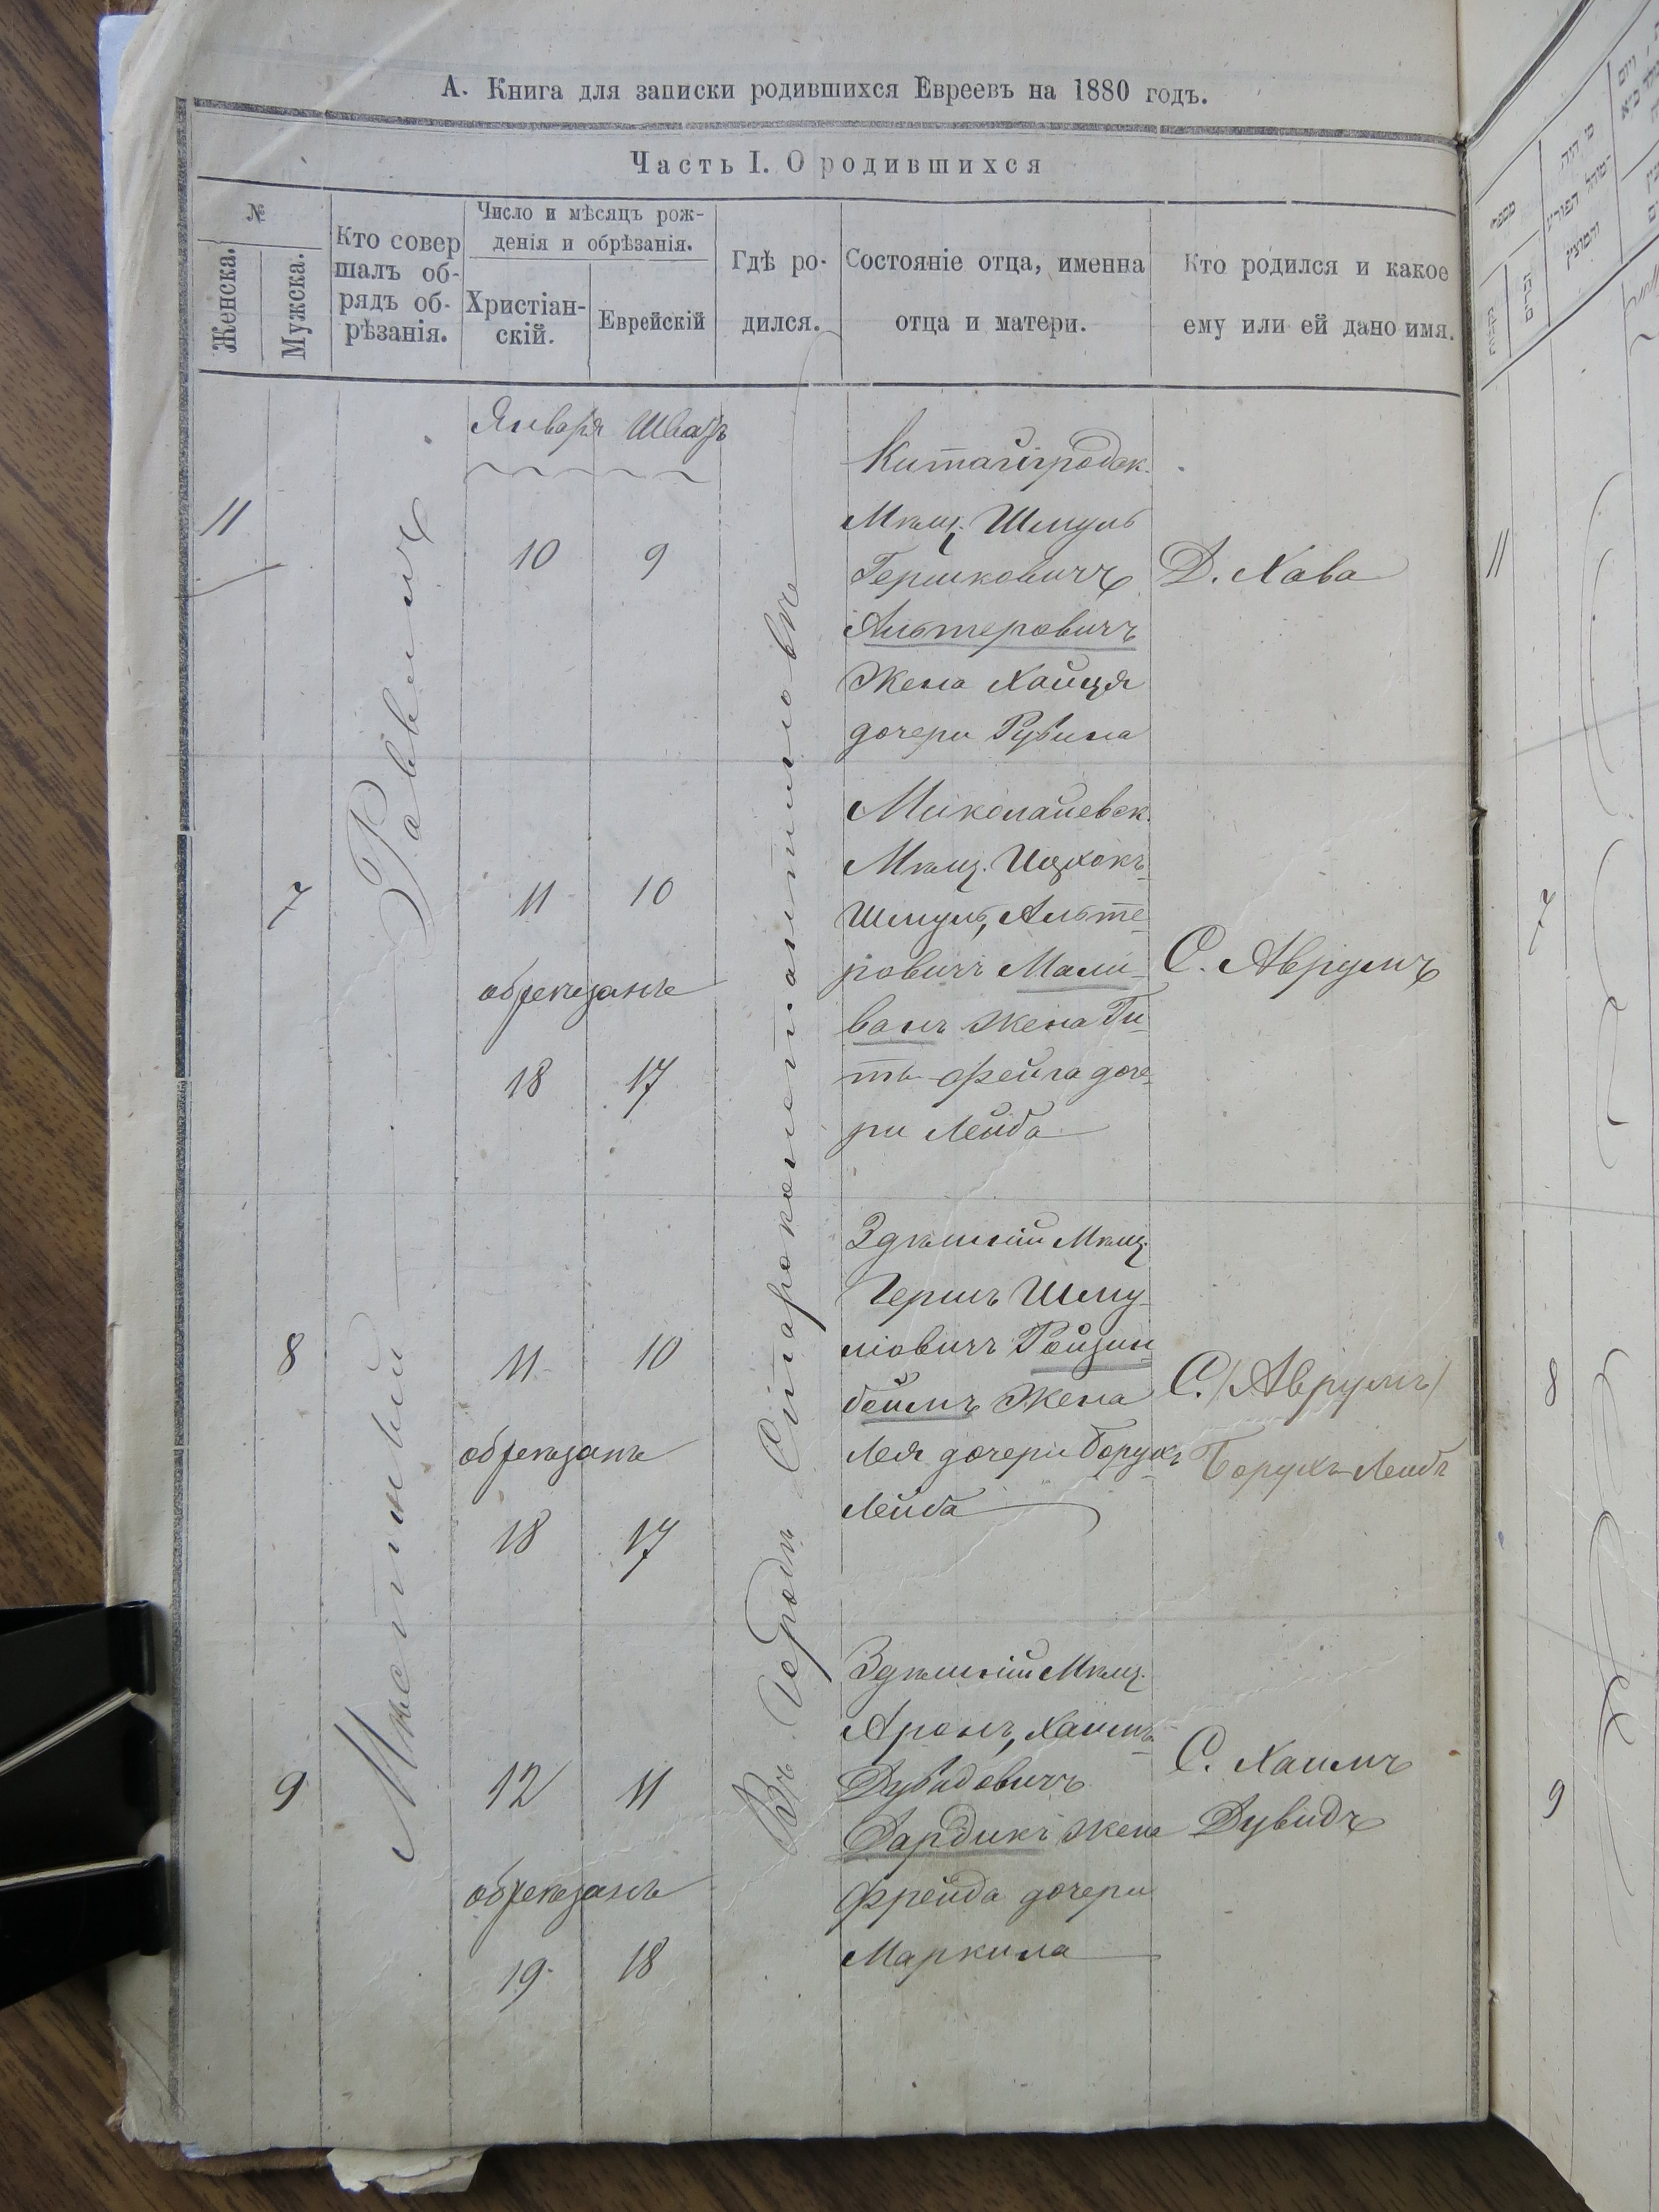 А. Книга для записки родившихся Евреевъ на 1880 годъ.
Часть I. О родившихся
№
Женска.
Мужска.
Кто совер
шалъ об-
рядъ об-
рѣзанія.
Число и мѣсяцъ рож-
денія и обрѣзанія.
Христіан-
скій.
Еврейскій
Гдѣ ро-
дился.
Состояніе отца, именна
отца и матери.
Кто родился и какое
ему или ей дано имя.
Января Шватъ
Мѣстный Раввинъ
Въ Городѣ Староконстантиновѣ
11
10 9
Китайгродск.
Мѣщ. Шмуль
Гершковичъ
Альтеровичъ
жена Хайця
дочери Рувина
Д. Хава
7
11 10
обрѣзанъ
18 17
Миколаевск.
Мѣщ. Ицхокъ-
Шмуль, Альте-
ровичъ Мали-
ванъ жена Ги-
тя-Фейга доче-
ри Лейба
С. Аврумъ
8
11 10
обрѣзанъ
18 17
Здѣшній Мѣщ.
Гершъ Шму-
ліовичъ Ройзин-
боймъ жена
Лея дочери Борухъ-
Лейба
С. (Аврумъ)
Борухъ-Лейбъ
9
12 11
обрѣзанъ
19 18
Здѣшній Мѣщ.
Аронъ, Хаимъ-
Дувидовичъ
Дардикъ жена
Фрейда дочери
Маркила
С. Хаимъ
Дувидъ
11
7
8
9